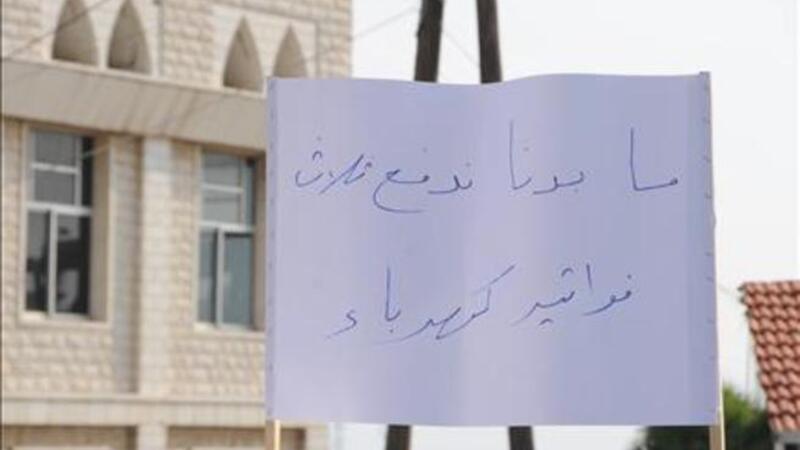 ما بدنا ندفع ثلاث
فواتير كهرباء